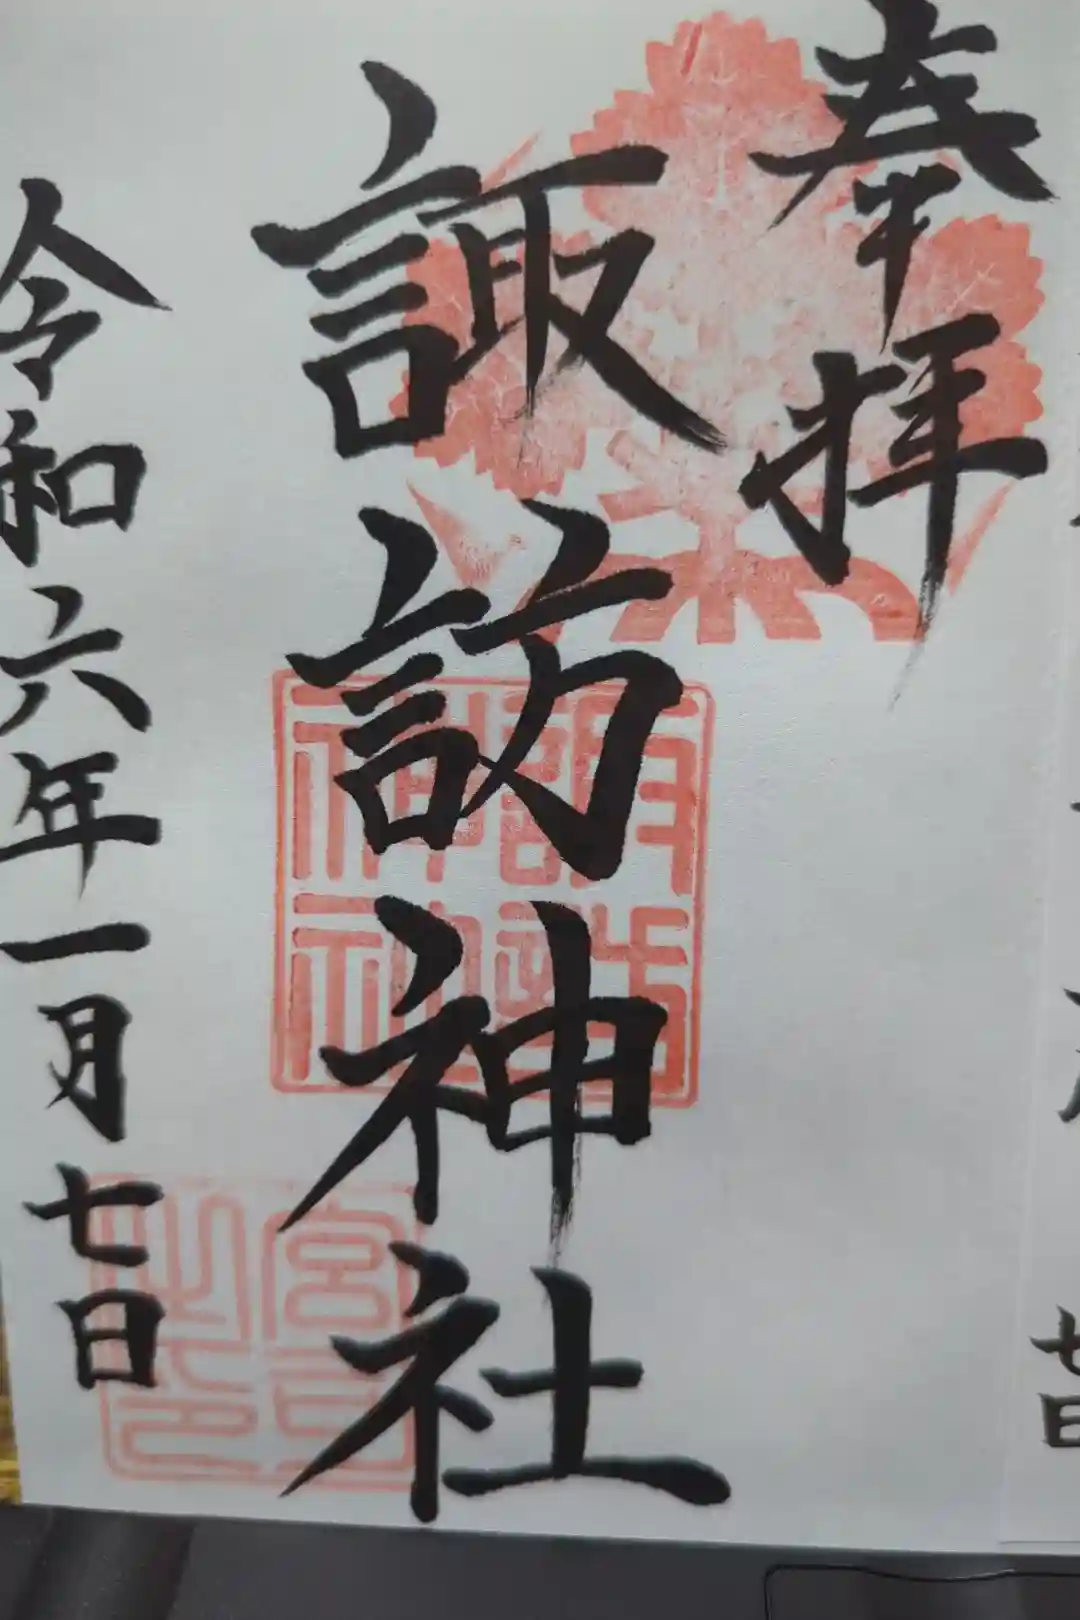 奉拝
諏訪神社
令和六年一月七日
宮司之印